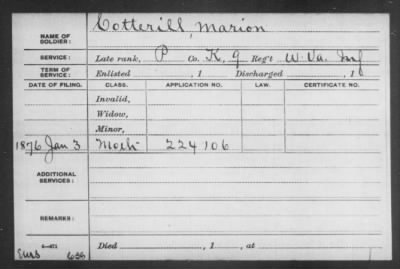 Cotterill, Marion
NAME OF SOLDIER:
SERVICE: Late rank, P Co. K, 9 Reg't W. Va. Inf
TERM OF SERVICE: Enlisted , 1 Discharged , 1
DATE OF FILING. CLASS. APPLICATION NO. LAW. CERTIFICATE NO.
Invalid,
Widow,
Minor,
1876 Jan 3 Moth 224106
ADDITIONAL SERVICES:
REMARKS:
Died , 1 , at